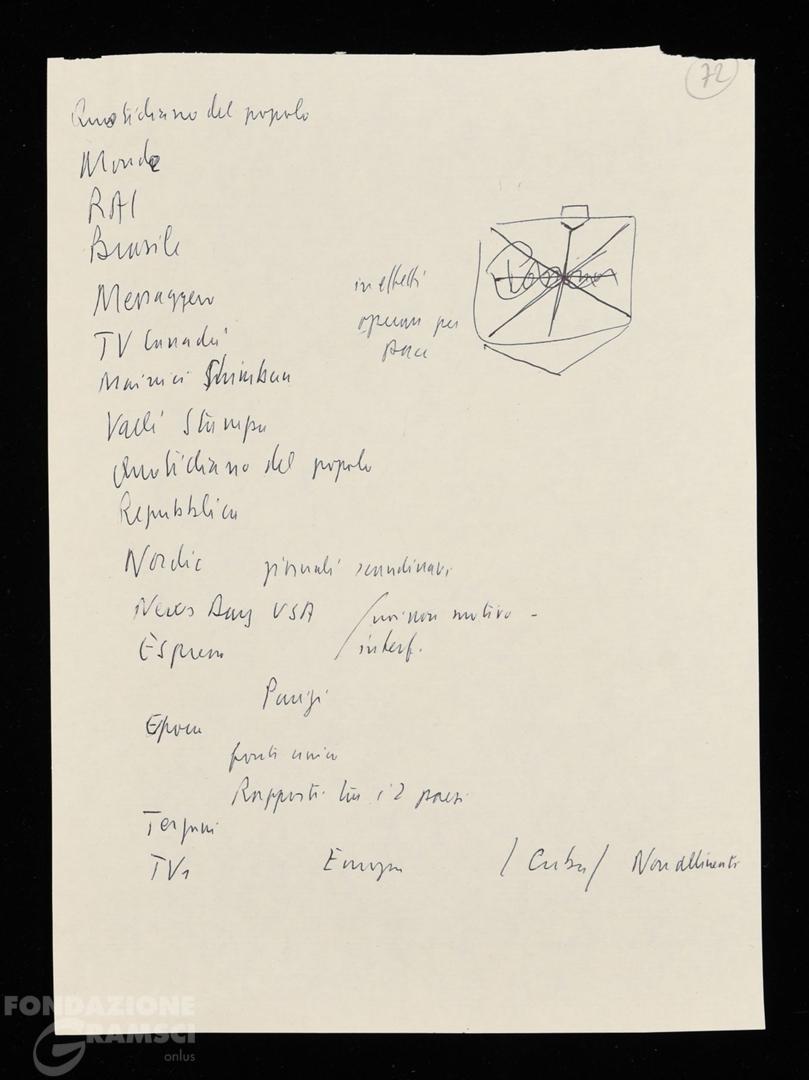 72
Quotidiano del popolo
Monde
RAI
Brasile
Messaggero
in effetti
TV Canadà
operano per
pace
Mainici Shimbun
Stampa
Quotidiano del popolo
Repubblica
Nordic giornali scandinavi
News Day USA / non motivo -
Espresso / interf.
Parigi
Epoca
fonti
Rapporti tra i 2 paesi
Tanjug
TV1 Europa / Cuba / Non allineati
FONDAZIONE
GRAMSCI
onlus